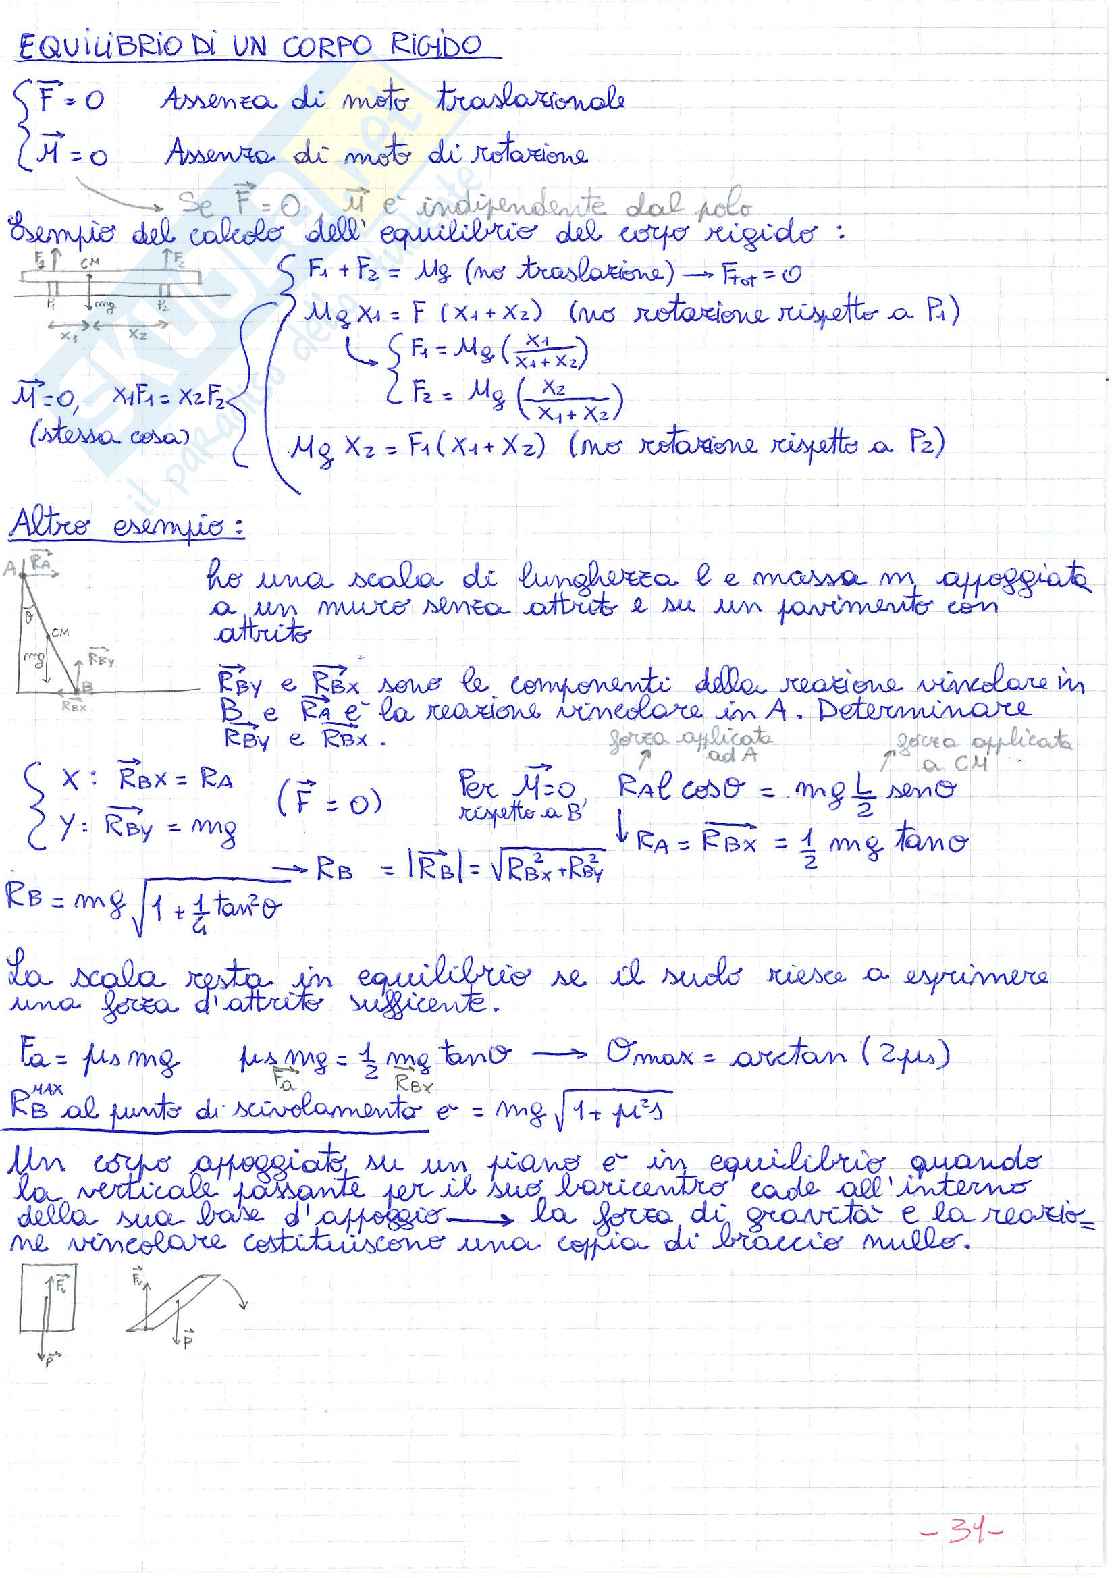 EQUILIBRIO DI UN CORPO RIGIDO
F = 0 Assenza di moto traslazionale
M = 0 Assenza di moto di rotazione
Se F = 0 M è indipendente dal polo
Esempio del calcolo dell'equilibrio del corpo rigido :
F1 + F2 = Mg (no traslazione) → FTOT = 0
Mg X1 = F (X1 + X2) (no rotazione rispetto a P1)
F1 = Mg (X1 / X1 + X2)
F2 = Mg (X2 / X1 + X2)
M = 0, X1F1 = X2F2
(stessa cosa)
Mg X2 = F1 (X1 + X2) (no rotazione rispetto a P2)
CM
mg
P1 P2
X1 X2
Altro esempio :
A RA
θ
CM
mg
RBY
B
RBX
ho una scala di lunghezza l e massa m appoggiata
a un muro senza attrito e su un pavimento con
attrito
RBY e RBX sono le componenti della reazione vincolare in
B e RA è la reazione vincolare in A. Determinare
RBY e RBX .
forza applicata ad A
forza applicata a CM
X : RBX = RA
Y : RBY = mg
(F = 0)
Per M = 0, rispetto a B
RA l cosθ = mg L/2 senθ
RA = RBX = 1/2 mg tanθ
→ RB = |RB| = √RBX² + RBY²
RB = mg √1 + 1/4 tan²θ
La scala resta in equilibrio se il suolo riesce a esprimere
una forza d'attrito sufficente.
Fa = μs mg μs mg = 1/2 mg tanθ → θmax = arctan (2μs)
Fa RBX
RB MAX al punto di scivolamento è = mg √1 + μ²s
Un corpo appoggiato su un piano è in equilibrio quando
la verticale passante per il suo baricentro cade all'interno
della sua base d'appoggio → la forza di gravità e la reazio=
ne vincolare costituiscono una coppia di braccio nullo.
P
P
- 31 -
skuola.net
il paradiso dello studente